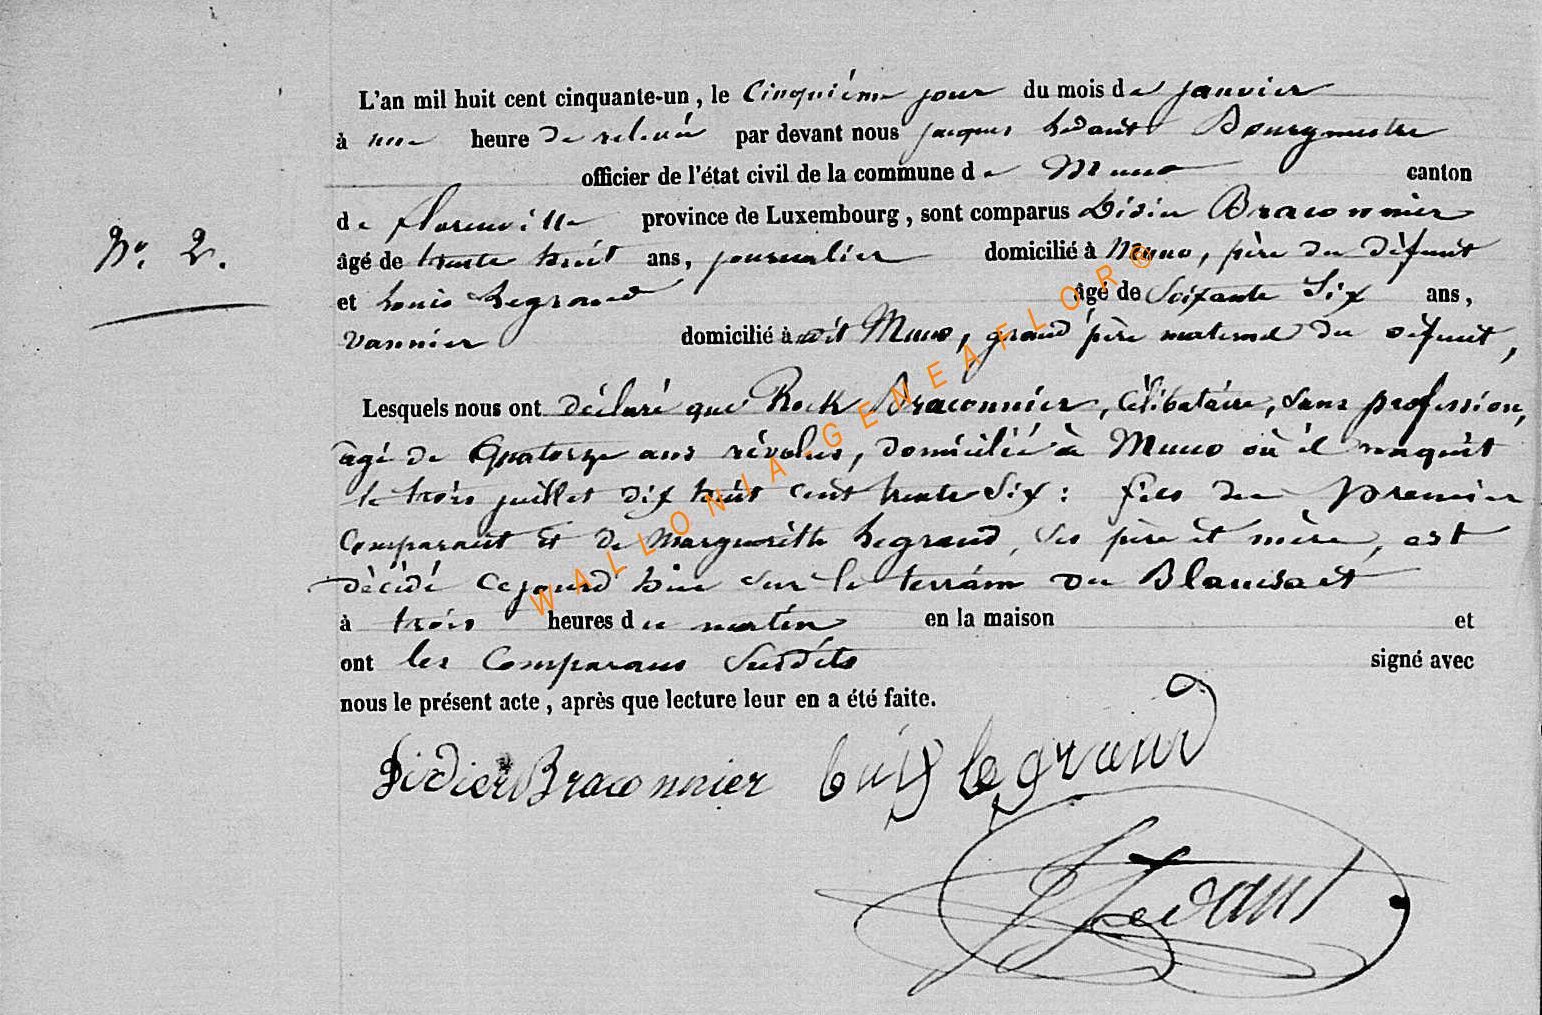 L'an mil huit cent cinquante-un, le Cinquième jour du mois de janvier
à une heure de relevée par devant nous jacques Ledant Bourgmestre
officier de l'état civil de la commune de Muno canton
de florenville province de Luxembourg, sont comparus Didier Braconnier
N°. 2.
âgé de trente huit ans, journalier domicilié à Muno, père du défunt
et Louis Legrand âgé de Soixante Six ans,
vannier domicilié à dit Muno, grand père maternel du défunt,
Lesquels nous ont déclaré que Rock Braconnier, Célibataire, Sans profession,
âgé de Quatorze ans révolus, domicilié à Muno où il naquit
le trois juillet dix huit cent trente Six : fils du premier
Comparant et de Marguerithe Legrand, Ses père et mère, est
décédé Cejourd'hui sur le terrain du
à trois heures du matin en la maison et
ont les Comparans Susdits signé avec
nous le présent acte, après que lecture leur en a été faite.
Didier Braconnier legrand
Ledant
WALLONIA.GENEAFLOR®